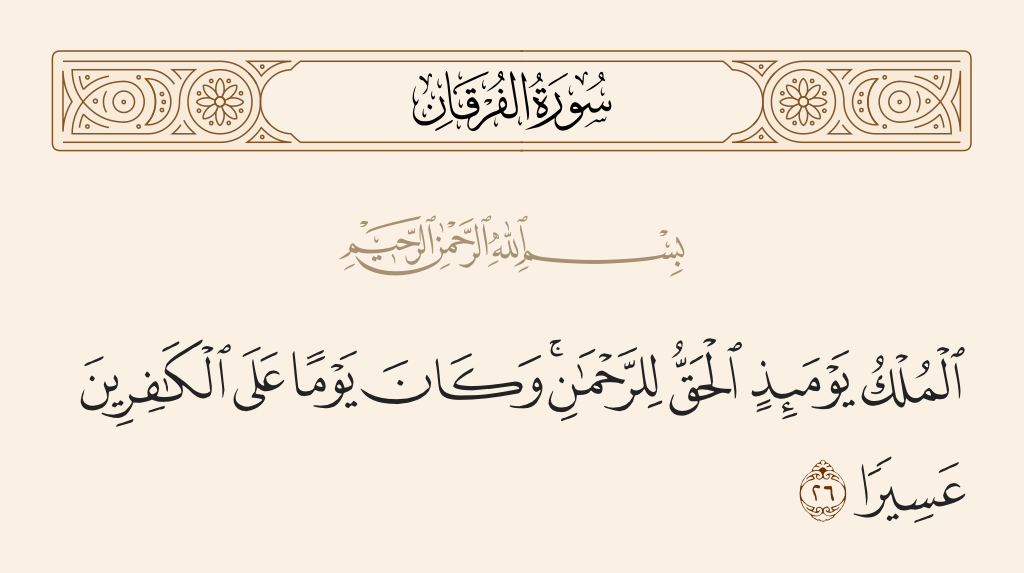 سُورَةُ الفُرْقَانِ
بِسْمِ ٱللَّهِ ٱلرَّحْمَٰنِ ٱلرَّحِيمِ
ٱلْمُلْكُ يَوْمَئِذٍ ٱلْحَقُّ لِلرَّحْمَٰنِ ۚ وَكَانَ يَوْمًا عَلَى ٱلْكَٰفِرِينَ
عَسِيرًا ٢٦